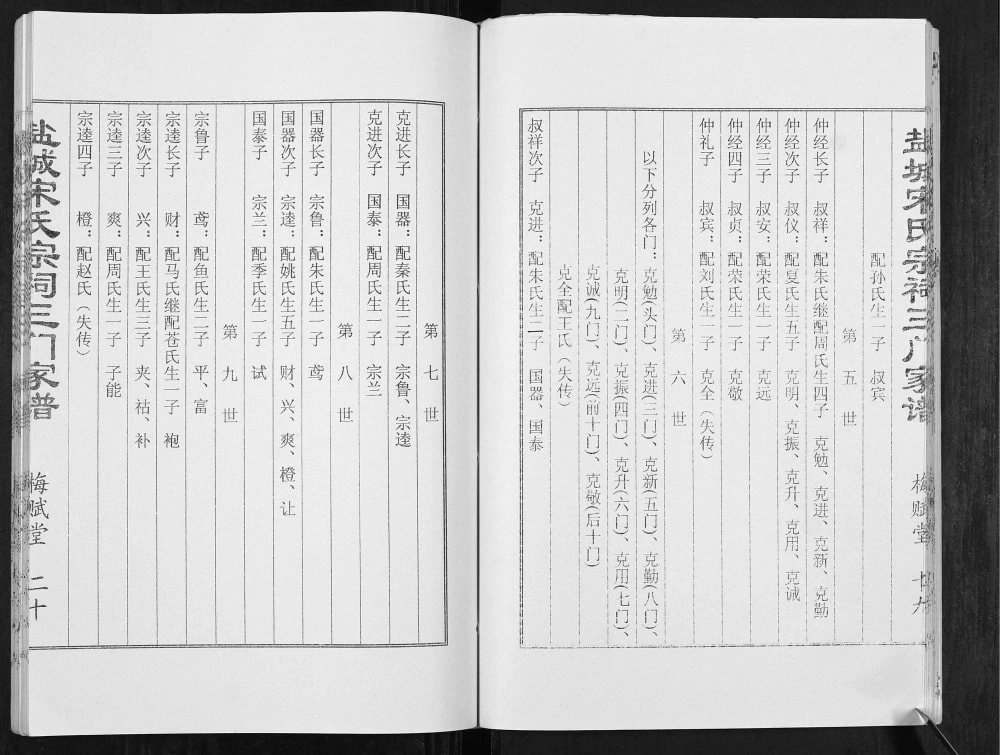 盐城宋氏宗祠三门家谱 梅赋堂 十九
配孙氏生一子 叔宾
第五世
仲经长子 叔祥：配朱氏继配周氏生四子 克勉、克进、克新、克勤
仲经次子 叔仪：配夏氏生五子 克明、克振、克升、克用、克诚
仲经三子 叔安：配荣氏生一子 克远
仲经四子 叔贞：配荣氏生一子 克敬
仲礼子 叔宾：配刘氏生一子 克全（失传）
第六世
以下分列各门：克勉(头门)、克进(三门)、克新(五门)、克勤(八门)、
克明(二门)、克振(四门)、克升(六门)、克用(七门)、
克诚(九门)、克远(前十门)、克敬(后十门)
克全配王氏（失传）
叔祥次子 克进：配朱氏生二子 国器、国泰
第七世
克进长子 国器：配秦氏生二子 宗鲁、宗逵
克进次子 国泰：配周氏生一子 宗兰
第八世
国器长子 宗鲁：配朱氏生一子 鸢
国器次子 宗逵：配姚氏生五子 财、兴、爽、橙、让
国泰子 宗兰：配季氏生一子 试
第九世
宗鲁子 鸢：配鱼氏生二子 平、富
宗逵长子 财：配马氏继配苍氏生一子 袍
宗逵次子 兴：配王氏生三子 夹、祜、补
宗逵三子 爽：配周氏生一子 子能
宗逵四子 橙：配赵氏（失传）
盐城宋氏宗祠三门家谱 梅赋堂 二十